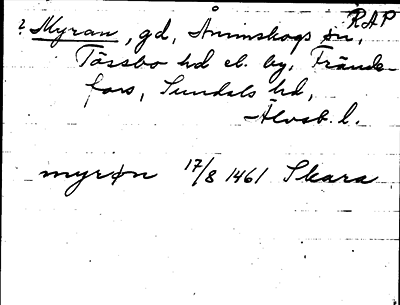 RAP
? Myran, gd, Ånimskogs sn,
Tössbo hd el. by, Frände-
fors, Sundals hd,
Älvsb. l.
myrøn 17/8 1461 Skara